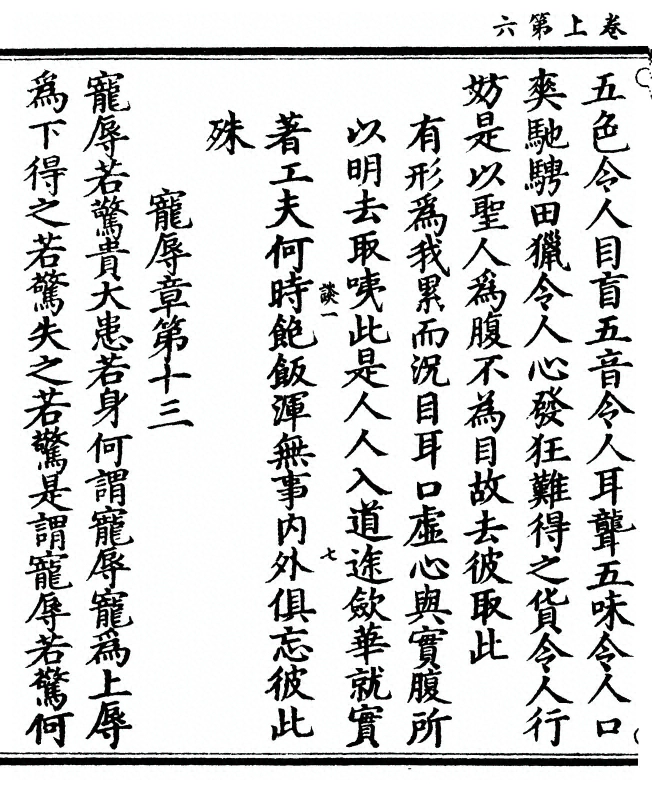 卷上第六
五色令人目盲五音令人耳聾五味令人口
爽馳騁田獵令人心發狂難得之貨令人行
妨是以聖人為腹不為目故去彼取此
有形為我累而況目耳口虛心與實腹所
以明去取咦此是人人入道途斂華就實
談一
七
著工夫何時飽飯渾無事內外俱忘彼此
殊
寵辱章第十三
寵辱若驚貴大患若身何謂寵辱寵為上辱
為下得之若驚失之若驚是謂寵辱若驚何